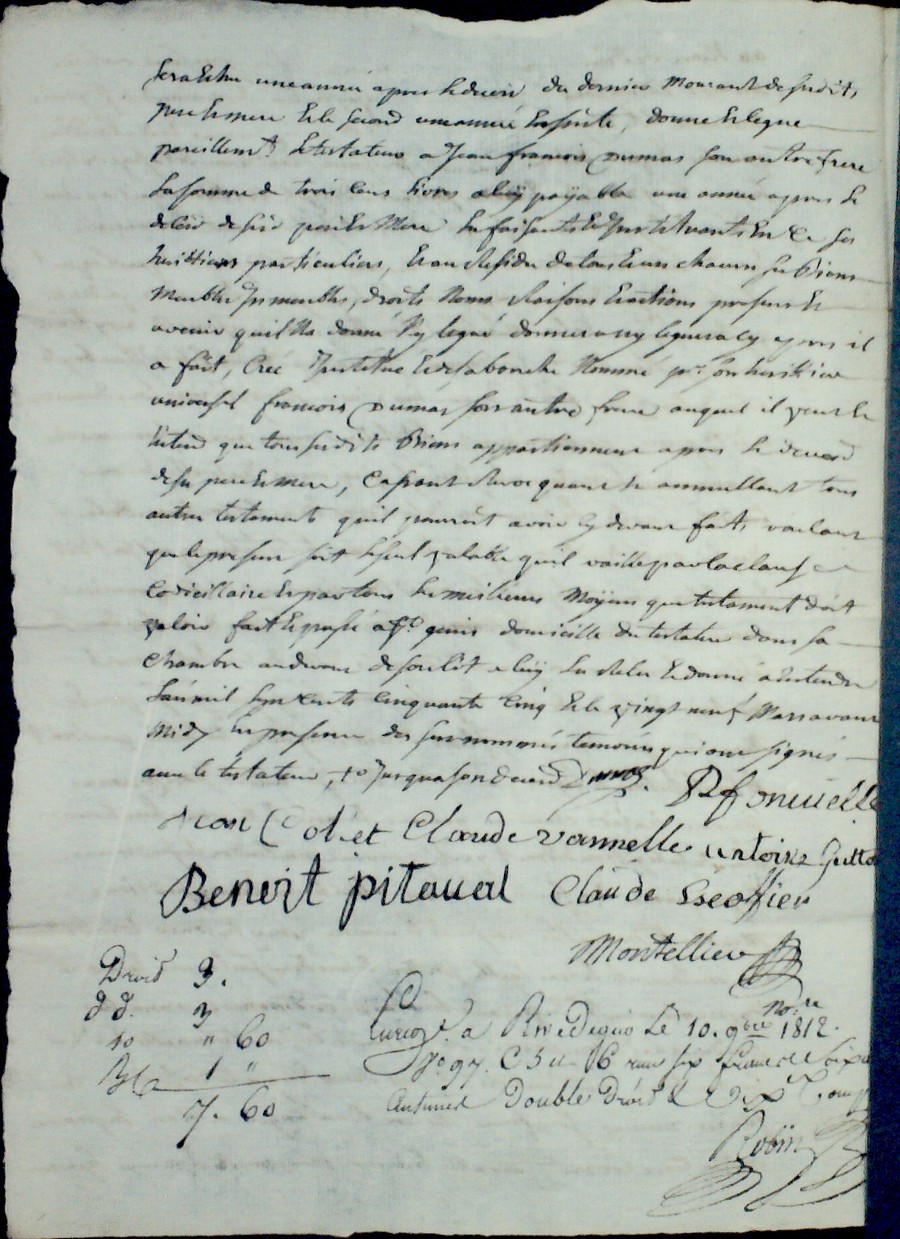 sera Eschu une année apres le deces du dernier Mourant de sesdits
pere Et mere Et le second une année Ensuite, donne Et legue
pareillemt. le testateur a Jean francois Dumas son autre frere
la somme de trois Cens livres a luy payable une année apres le
deces de ses pere Et Mere les faisants Et Instituants En Ce ses
heritiers particuliers, Et au Residu de tous Et uns chacuns ses Biens
Meubles Immeubles, droits Noms Raisons Et actions presents Et
avenir quil Na donné Ny legué donnera ny leguera Cy apres il
a fait, Créé Institué Et de sa bouche Nommé pr. son heritier
universel francois Dumas son autre frere auquel il veut Et
Entend que tous sesdits Biens appartiennent apres le deces
de ses pere Et mere, Cassant Revocquant Et annullant tous
autres testaments quil pourroit avoir Cy devant faits voulant
que le present soit le seul valable quil vaille par la clause
Codicillaire Et par tous les meilleurs Moyens que testament doit
valoir fait Et passé domicille du testateur dans sa
Chambre au devant de son lit a luy Lu Relu Et donné a Entendre
Lan mil sept Cents Cinquante Cinq Et le vingt neuf Mars avant
Midy En presence des sus nommés temoins qui ont signés
avec le testateur, Jusqua son deces Dumas.
Jean Colet Claude vannelle antoine
Benoit pitaval Claude
Montellier
Droit 3.
d d. 3
10 " 60
1 "
7. 60
No.re
a Rivedegier Le 10. 9bre 1812.
fo 97. C 5 six francs
Double Droit & Dixe.
Robin